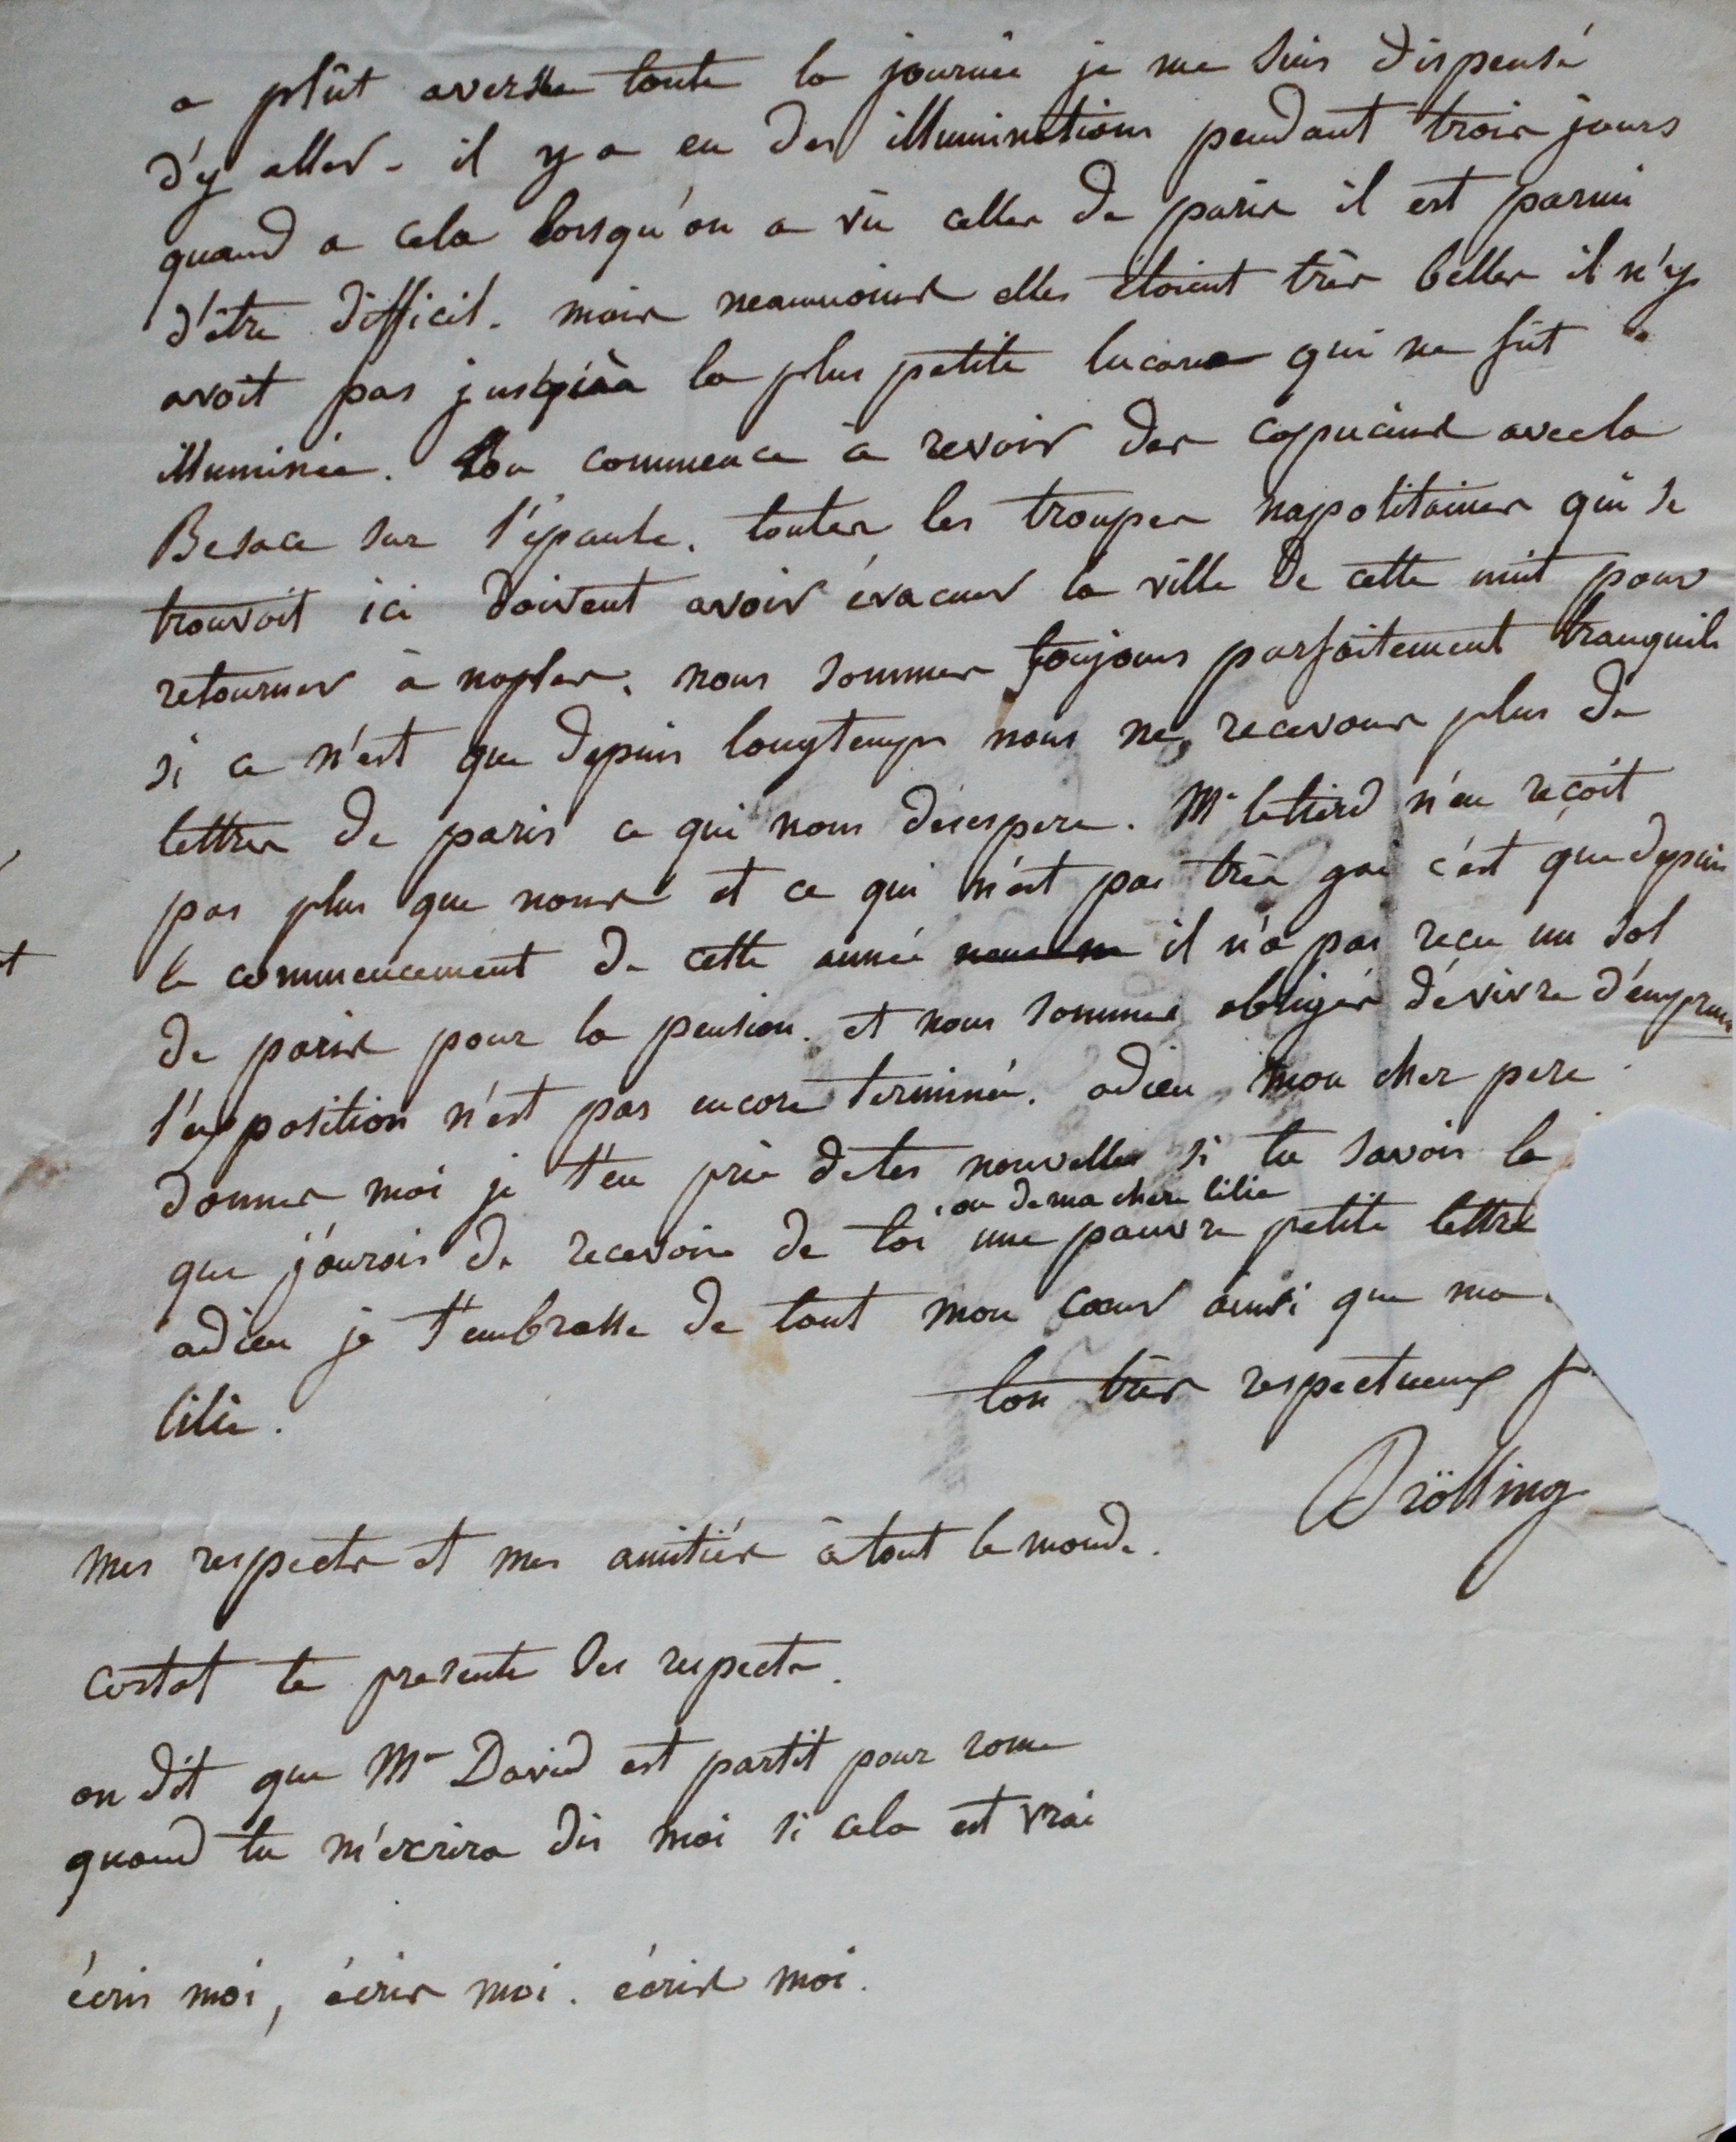 a plût aversse toute la journée je me suis dispensé
d'y aller. il y a eu des illuminations pendant trois jours
quand a cela lorsqu'on a vû celles de paris il est parmi
d'être difficil. mais neanmoins elles étoient très belles il n'y
avoit pas jusqu'àà la plus petite lucarne qui ne fût
illuminée. on commence à revoir des capucins avec la
Besace sur l'épaule. toutes les troupes napolitaines qui se
trouvoit ici doivent avoir évacuer la ville de cette nuit pour
retourner à naples. nous sommes toujours parfaitement tranquils
si ce n'est que depuis longtemps nous ne recevons plus de
lettres de paris ce qui nous desespere. Mr letierd n'en reçoit
pas plus que nous et ce qui n'est pas très gai c'est que depuis
le commencement de cette année nous ne il n'a pas reçu un sol
de paris pour la pension. et nous sommes obligés dé vivre d'émprun
l'exposition n'est pas encore terminée. adieu mon cher pere
donnes moi je t'en prie de tes nouvelles si tu savois le
ou de ma chere lilie
que j'aurois de recevoir de toi une pauvre petite lettre
adieu je t'embrasse de tout mon cœur ainsi que ma
lilie.
ton très respectueux f
Drölling
mes respects et mes amitiés à tout le monde.
costat te presente ses respects.
on dit que Mr David est partit pour rome
quand tu m'ecrira dis moi si cela est vrai
écris moi, écris moi. écris moi.